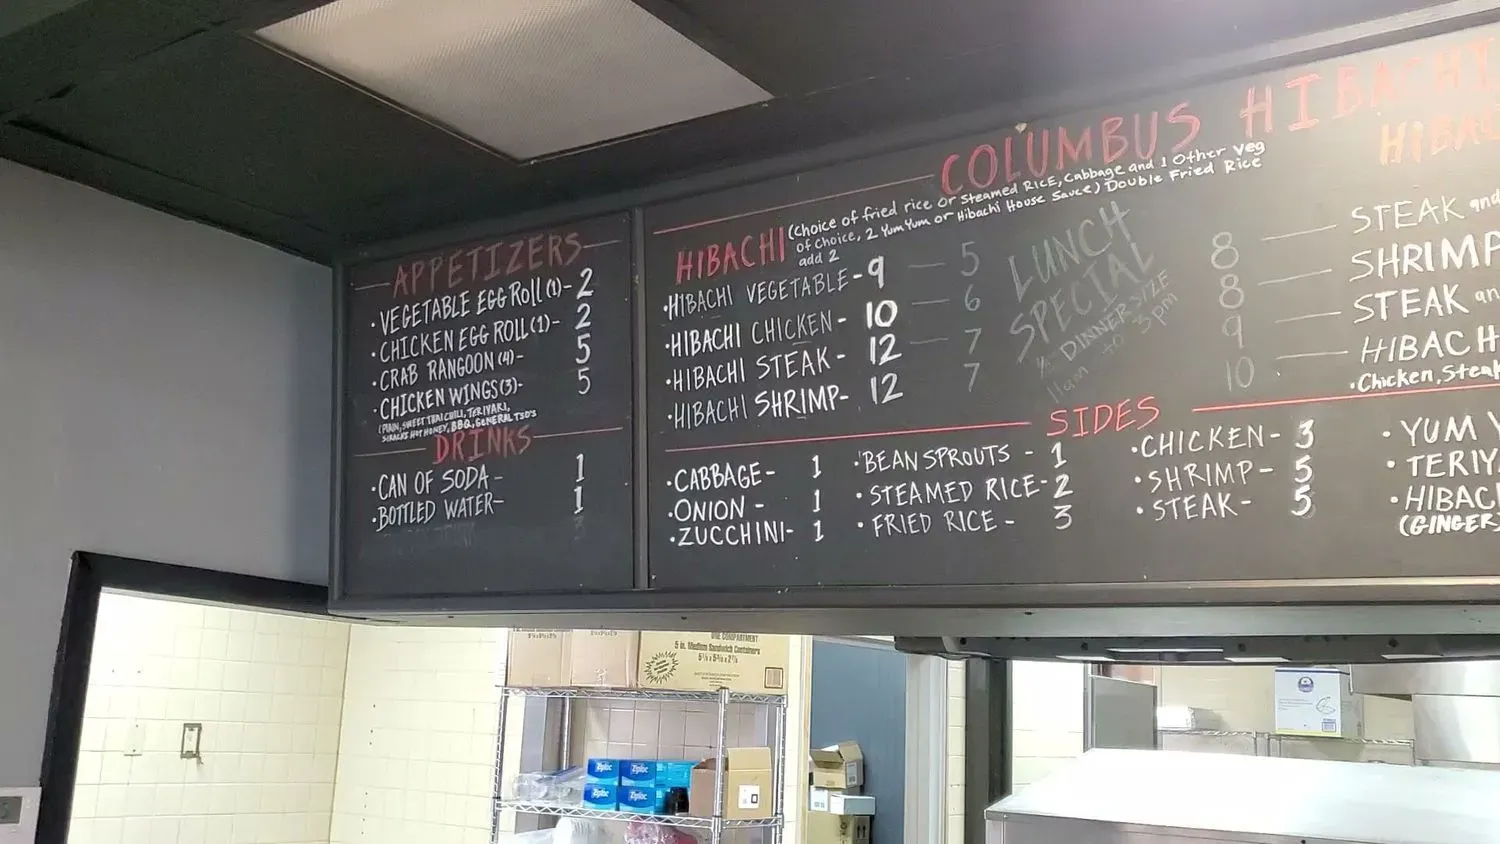 COLUMBUS HIBACHI
HIBAC
APPETIZERS
• VEGETABLE EGG Roll (1)- 2
• CHICKEN EGG ROLL (1)- 2
• CRAB RANGOON (4)- 5
• CHICKEN WINGS (3)- 5
(PLAIN, SWEET THAI CHILI, TERIYAKI,
SIRACHA HOT HONEY, BBQ, GENERAL TSO'S
DRINKS
• CAN OF SODA - 1
• BOTTLED WATER- 1
3
HIBACHI (Choice of fried rice or Steamed RICE, Cabbage and 1 Other Veg
of Choice, 2 Yum Yum or Hibachi House Sauce) Double Fried Rice
add 2
• HIBACHI VEGETABLE - 9 — 5
• HIBACHI CHICKEN- 10 — 6
• HIBACHI STEAK- 12 — 7
• HIBACHI SHRIMP- 12 7
LUNCH
SPECIAL
1/2 DINNER SIZE
11am to 3pm
8 — STEAK and
8 — SHRIMP
9 — STEAK an
10 — HIBACH
• Chicken, Steak
SIDES
• CABBAGE- 1
• ONION - 1
• ZUCCHINI- 1
• BEAN SPROUTS - 1
• STEAMED RICE- 2
• FRIED RICE - 3
• CHICKEN- 3
• SHRIMP- 5
• STEAK- 5
• YUM Y
• TERIYA
• HIBAC
(GINGER)
ONE COMPARTMENT
5 in. Medium Sandwich Containers
Ziploc
Ziploc
Ziploc
Ziploc